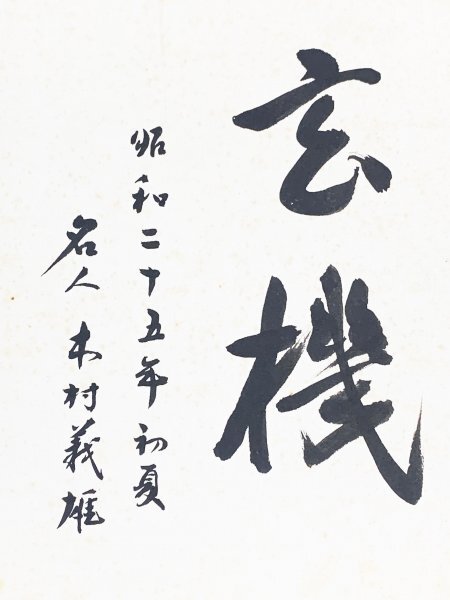 玄機
昭和二十五年初夏
名人 木村義雄